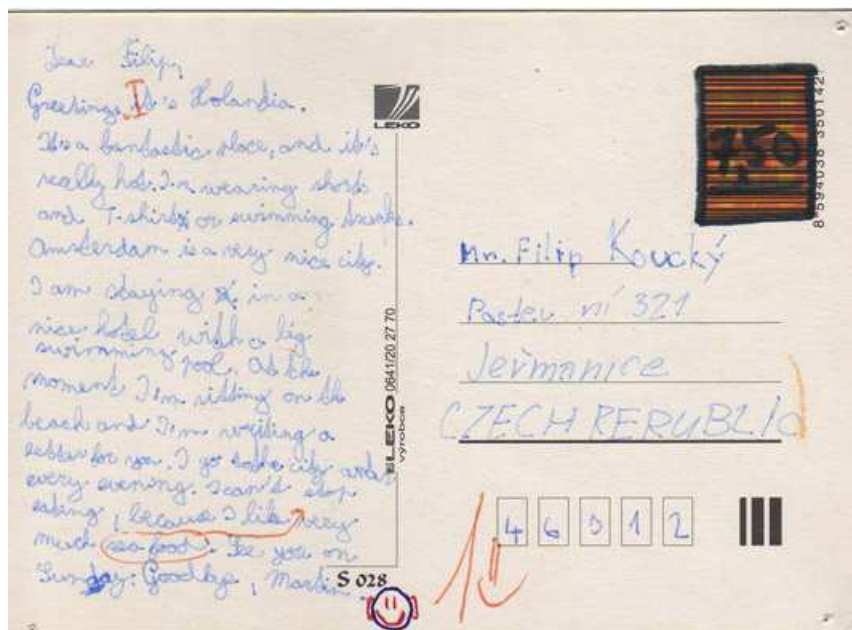 Dear Filip,
Greetings, It's Holandia.
It's a fantastic place, and it's
really hot. I'm wearing shorts
and T-shirts or swimming trunks.
Amsterdam is a very nice city.
I am staying in a
nice hotel with a big
swimming pool. At the
moment I'm sitting on the
beach and I'm writing a
letter for you. I go to the city
every evening. I can't stop
eating, because I like very
much sea food. See you on
Sunday. Goodbye, Martin
LEKO
750
8 594038 350142
Mr. Filip Koucký
ní 321
Jeřmanice
CZECH RERUBLIC
LEKO 0641/20 27 70
výrobce
46312
S 028